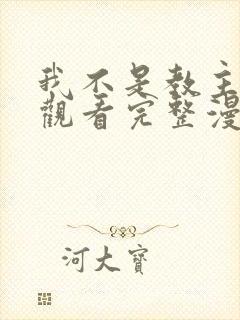 我不是教主
觀看完整漫
河大寶